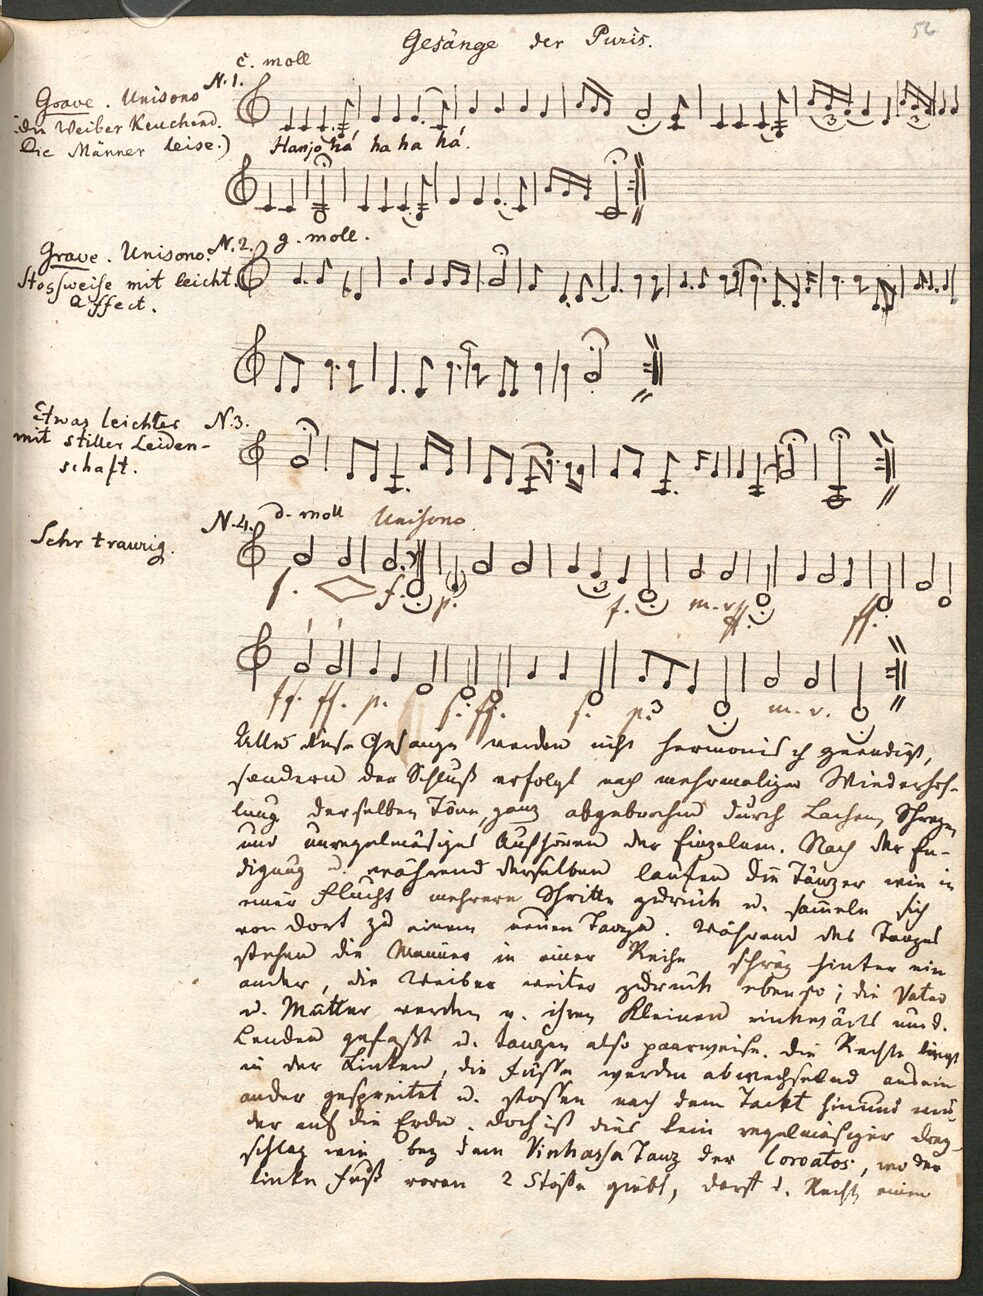 56
Gesänge der Puris.
c. moll
N. 1.
Grave. Unisono
die Weiber Keuchend.
Die Männer leise.)
Hanjo há ha ha há.
N. 2. g. moll.
Grave. Unisono.
Stossweise mit leicht.
Affect.
Etwas leichter N. 3.
mit stiller Leiden-
schaft.
N. 4. d. moll Unisono.
Sehr traurig.
f. f. p. 3 f. m. v. ff. ff.
ff. ff. p. f. ff. f. p. 3 m. v.
Alle diese Gesänge werden nicht harmonisch geendigt,
sondern der Schluß erfolgt nach mehrmaliger Wiederhoh-
lung derselben Töne, ganz abgebrochen durch Lachen, Schreyen
und unregelmäsiges Aufhören der Einzelnen. Nach der En-
digung u. während derselben laufen die Tänzer wie in
einer Flucht mehrere Schritte zurück u. sam̄eln sich
von dort zu einem neuen Tanze. Während des Tanzes
stehen die Männer in einer Reihe schräg hinter ein
ander, die Weiber weiter zurück ebenso; die Vater
u. Mutter werden v. ihren Kleinen rückwärts um d.
Lenden gefaßt u. tanzen also paarweise. Die Rechte liegt
in der Linken, die Füsse werden abwechselnd ausein
ander gespreitet u. stossen nach dem Tackt hin und wie
der auf die Erde. Doch ist dies kein regelmäsiger
schlag wie bey dem Tanz der Coroatos, wo der
linke Fuß voran 2 Stöße giebt, der Rechte einen